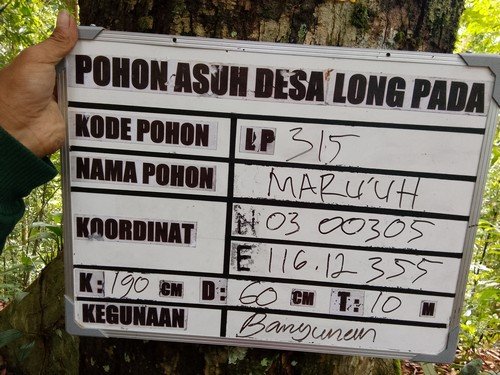 POHON ASUH DESA LONG PADA
KODE POHON LP 315
NAMA POHON MARU'UH
KOORDINAT N 03 00305
E 116.12 355
K: 190 CM D: 60 CM T: 10 M
KEGUNAAN Bangunan